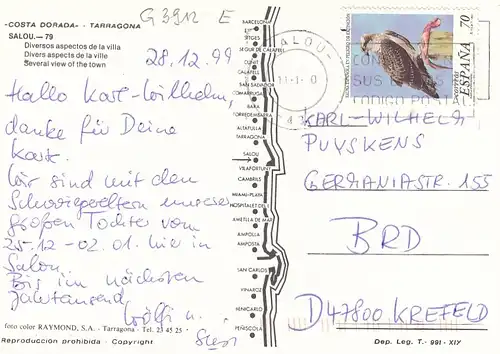 -COSTA DORADA- - TARRAGONA
SALOU.—79
Diversos aspectos de la villa
Divers aspects de la ville
Several view of the town
G3912 E
28.12.99
Hallo Karl-Wilhelm,
danke für Deine
Karte.
Wir sind mit den
Schwiegereltern unserer
großen Tochter vom
25.12-02.01. hier in
Salou.
Bis im nächsten
Jahrtausend,
Wölfi u.
foto color RAYMOND, S.A. - Tarragona - Tel. 23 45 25
Reproducción prohibida - Copyright
BARCELONA
SITGES
CUNIT
CALAFELL
SAN SALVADOR
COMARRUGA
BARA
TORREDEMBARRA
ALTAFULLA
TARRAGONA
SALOU
VILAFORTUNY
CAMBRILS
MIAMI-PLAYA
HOSPITALET DEL I.
AMETLLA DE MAR
AMPOLLA
AMPOSTA
SAN CARLOS
VINAROZ
BENICARLO
PEÑISCOLA
SALOU-
CODIGO POSTAL
70
ESPAÑA
CORREOS
KARL-WILHELM
PUYSKENS
GERMANIASTR. 155
BRD
D47800 KREFELD
Dep. Leg. T.- 991 - XIV